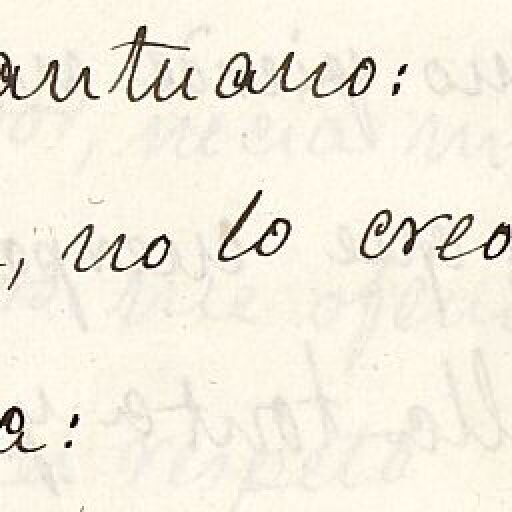 antuano:
, no lo creo
a: